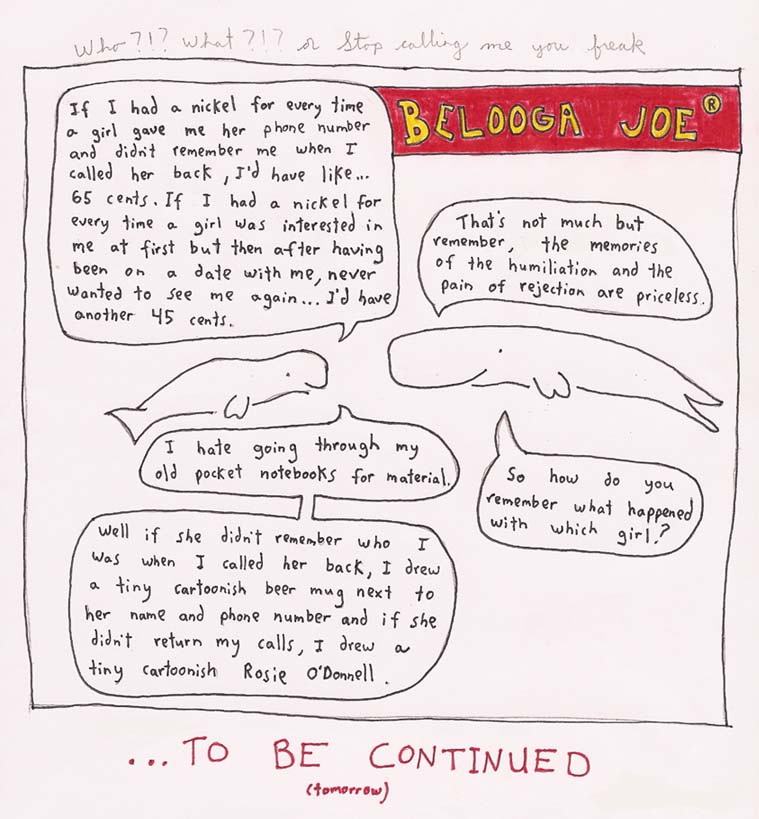 Who?!? What?!? or Stop calling me you freak
BELOOGA JOE®
If I had a nickel for every time
a girl gave me her phone number
and didn't remember me when I
called her back, I'd have like...
65 cents. If I had a nickel for
every time a girl was interested in
me at first but then after having
been on a date with me, never
wanted to see me again... I'd have
another 45 cents.
That's not much but
remember, the memories
of the humiliation and the
pain of rejection are priceless.
I hate going through my
old pocket notebooks for material.
So how do you
remember what happened
with which girl?
Well if she didn't remember who I
was when I called her back, I drew
a tiny cartoonish beer mug next to
her name and phone number and if she
didn't return my calls, I drew a
tiny cartoonish Rosie O'Donnell.
...TO BE CONTINUED
(tomorrow)